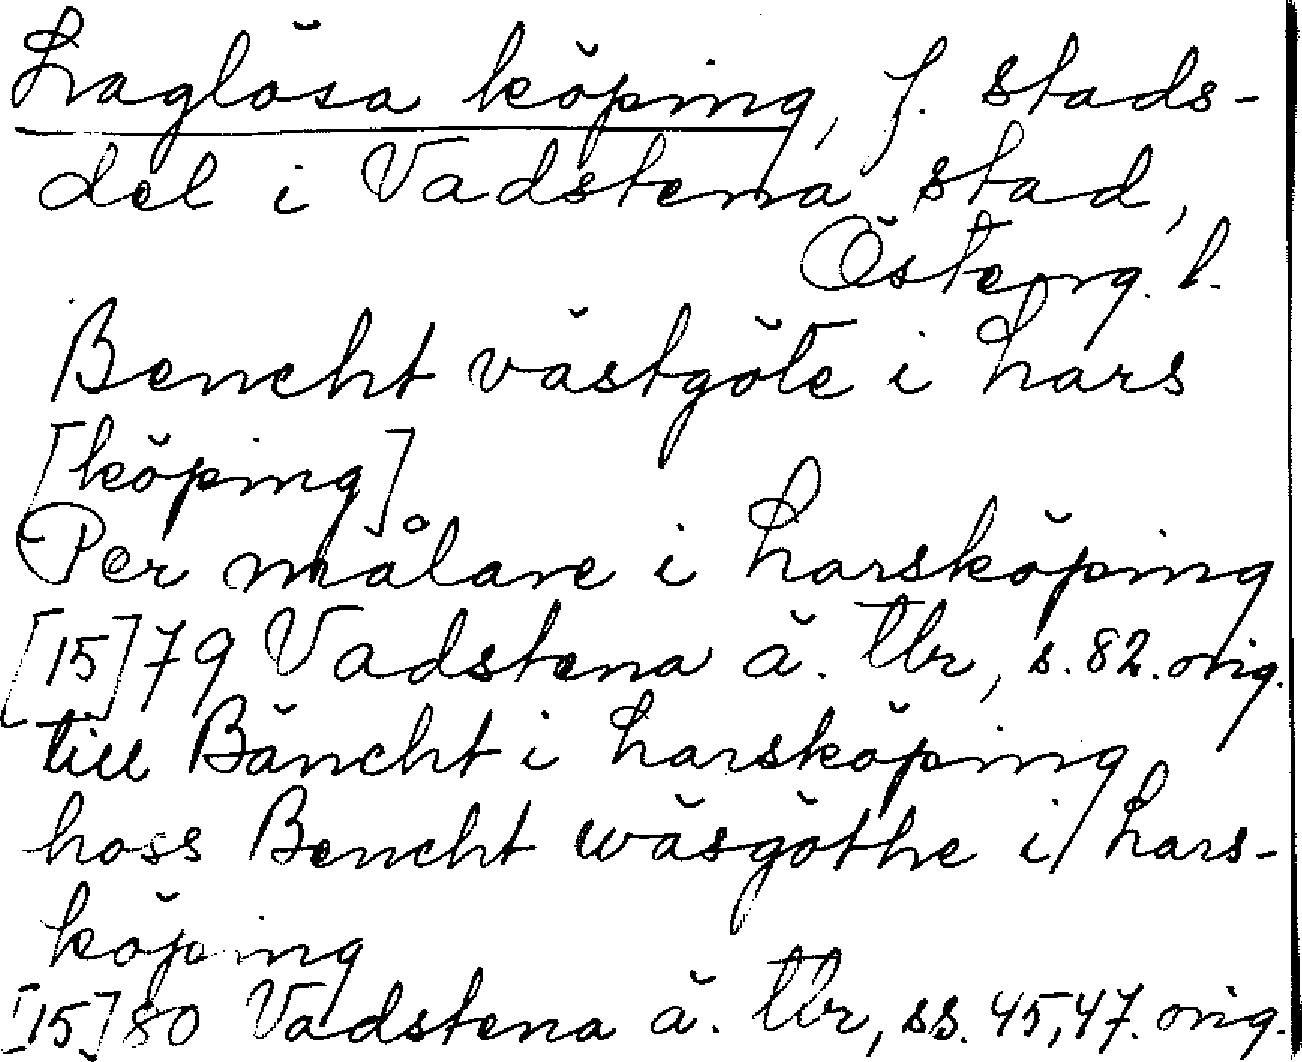 Laglösa köping, f. stads-
del i Vadstena stad,
Österg. l.
Bencht västgöte i Lars
[köping]
Per målare i Larsköping
[15]79 Vadstena ä. tbr, s. 82. orig.
till Bäncht i Larsköping
hoss Bencht wäsgöthe i Lars-
köping
[15]80 Vadstena ä. tbr, ss. 45, 47. orig.